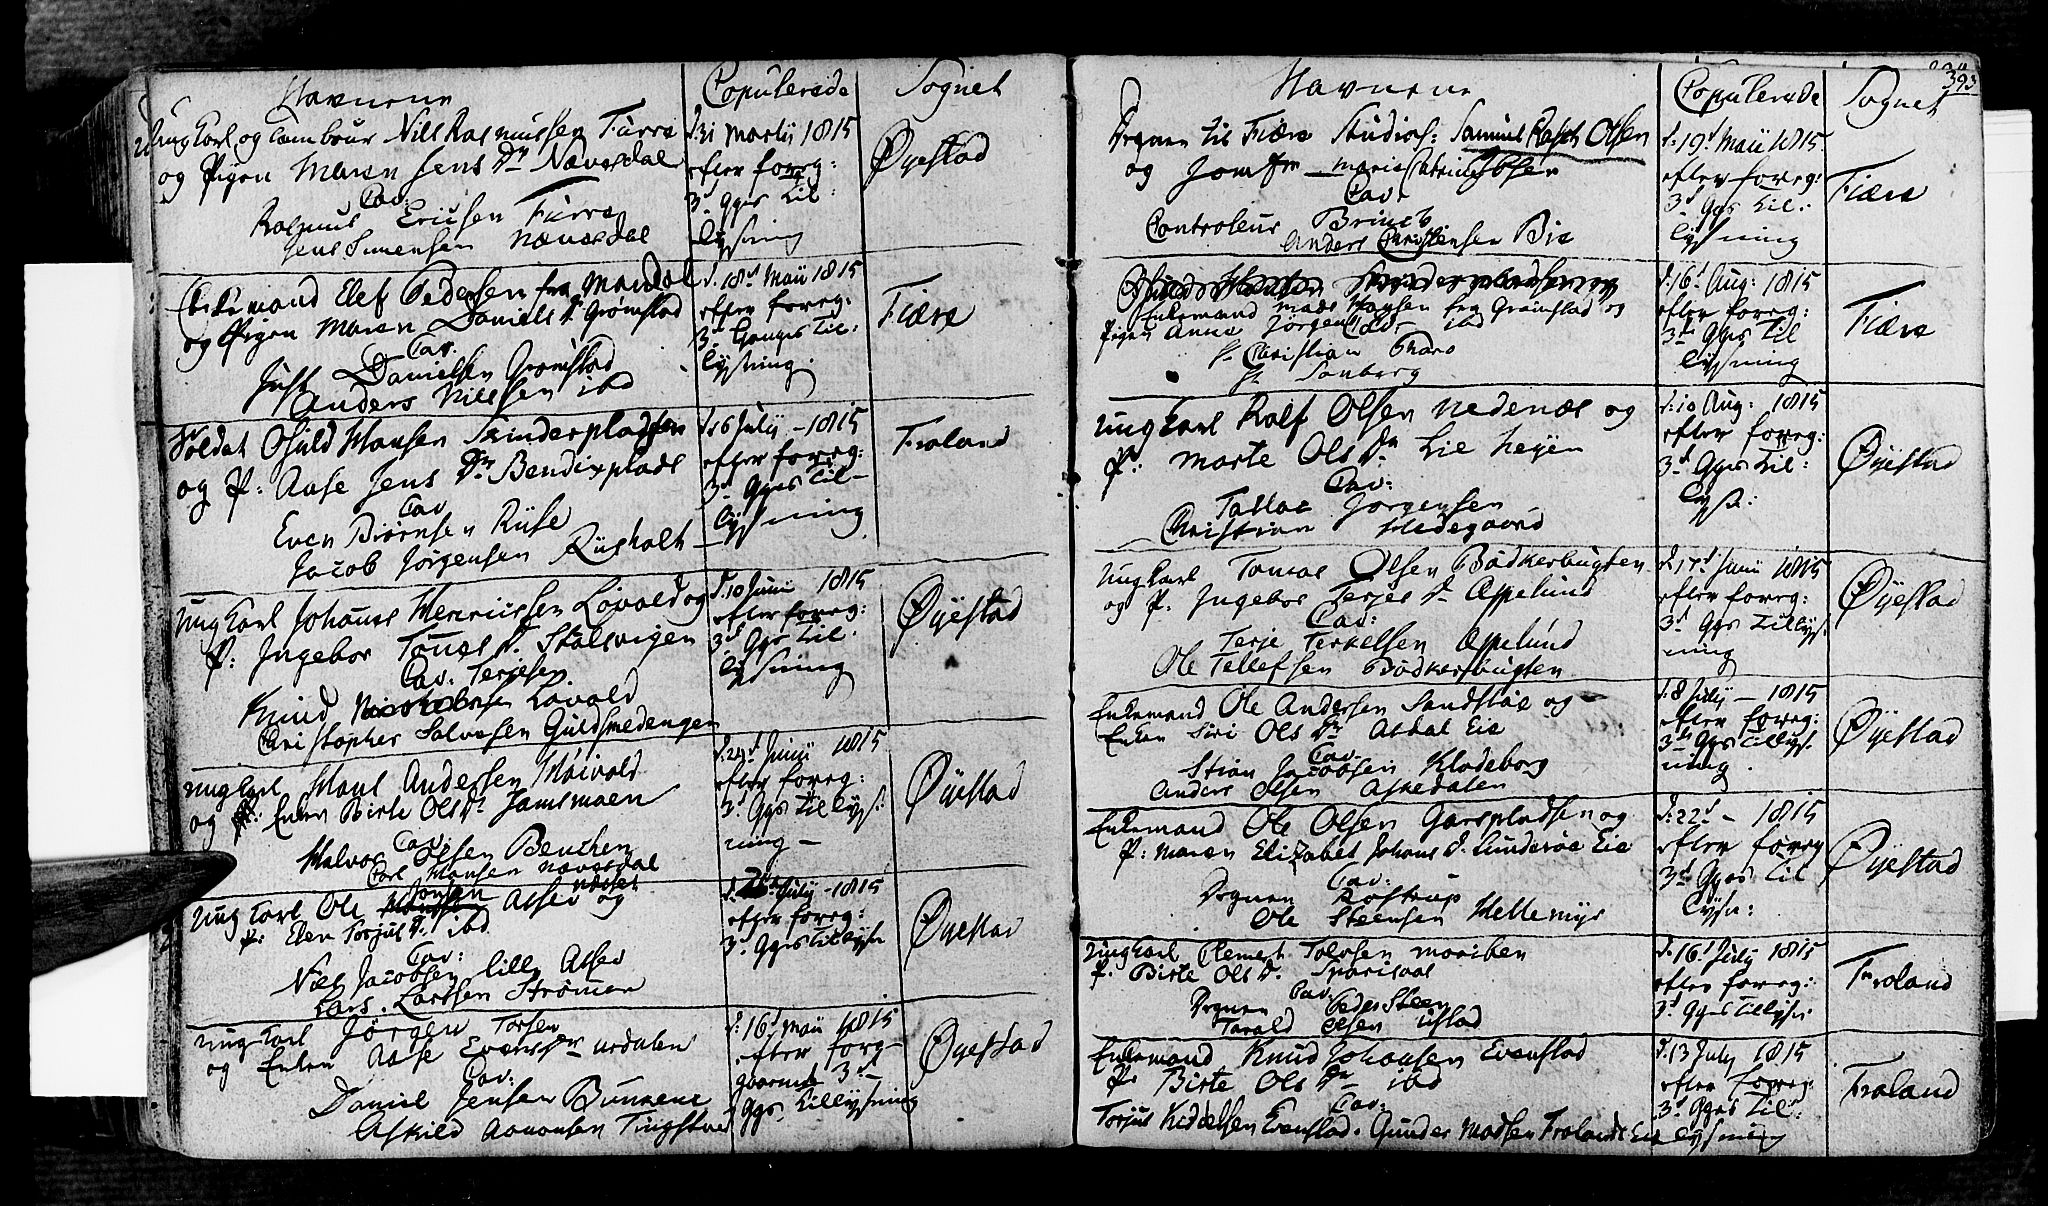 Havnene
Copulerede
Sognet
ung Karl og tambour Nils Rasmussen Furre
og Pigen Maren Jens Dr Nævesdal
Cav:
Rasmus Ericksen Furre
Jens Simensen Nævesdal
d: 31 Martij 1815
efter foreg:
3de Ggrs til:
lysning
Øyestad
Enkemand Elef Pedersen fra Mandal
og Pigen Maren Daniels D. Grømstad
Cav.
Just Danielsen Grømstad
Anders Nielsen ibd
d. 18d Maii 1815
efter foreg:
3. Ganges til:
lysning.
Fiære
Soldat Osuld Hansen Skinderpladsen
og P: Aase Jens Dr Bendixplads
Cav
Even Biørnsen Riise
Jacob Jørgensen Riisholt
d: 6 Julij - 1815
efter foreg:
3d Ggrs til-
lysning
Froland
ung Karl Johannes Henricksen Løvold og
P: Ingebor Tønes D. Stølsvigen
Cav: Terjesen
Knud Løvold
Christopher Salvesen Guldsmedengen
d. 10 Junii 1815
efter foreg:
3d Ggs til.
lysning
Øyestad
ung Karl Hans Andersen Høivold
og P: Enken Birte Ols Dr Jamsmoen
Cav.
Halvor Olsen Benchen
Carl Hansen Nævesdal
d: 24d Junii 1815
efter foreg:
3d Ggs tillys:
ning -
Øyestad
ung Karl Ole Jonsen Alsev og
P: Elen Torjus D. ibd
Cav:
Niels Jacobsen lille Alsev
Lars Larssen Strømen
Julij - 1815
efter foreg:
3d Ggs tillysn
Øyestad
ung Karl Jørgen Torsen
og Enken Aase Evens Dr urdalen
Cav:
Daniel Jensen Bunkene
Askild Aanonsen Tingstve
d: 16d Maii 1815
efter forg-
3d -
Ggs tillysning
Øyestad
393
Havnene
Copulerede
Sognet
Degnen til Fiære Studios: Samuel Rasch Olsen
og Jomfr Marie Cathrine Ibsen
Cav:
Controleur Brinch
Anders Christensen Bie
d: 19d Maii 1815
efter foreg:
3d Ggs til:
lysning
Fiære
Enkemand Mads Hansen fra Grømstad og
Pigen Anne Jørgens ibd
Cav
Hr Christian Gharo
Hr Sanberg
d: 16d Aug: 1815
efter foreg:
3de Ggs til
lysning
Fiære
ung Karl Ralf Olsen Nedenæs og
P: Marte Ols Dr Lie heyen
Cav:
Tallac Jørgensen
Christian Hedegaard
d: 10 Aug: 1815
efter foreg:
3d Ggs til:
lys:
Øyestad
ung Karl Tomas Olsen Bødkerbugten
og P. Ingebor Terjes D. Asselund
Cav:
Terje Terkelsen Asselund
Ole Tellefsen Bødkersbugten
d. 17d Junii 1815
efter foreg:
3d Ggs tillys:
ning
Øyestad
Enkemand Ole Andersen Sandstøe og
Enken Siri Ols Dr Asdal Eie
Cav:
Stian Jacobsen Klødeborg
Anders Olsen Askedalen
d: 8 July - 1815
efter foreg:
3de Ggs tillys.
ning.
Øyestad
Enkemand Ole Olsen Garspladsen og
P: Maren Elizabet Johans D. Sunderøe Eie
Cav:
Degnen Rostrup
Ole Steensen Hellemyr
d: 22d - 1815
efter foreg
3d Ggs til
lysn:
Øyestad
ung Karl Clemet Tolvsen moriben
P. Birte Ols D.
Cav:
Degnen Peder Steen
Tarald Olsen Ustad
d: 16d July 1815
efter foreg:
3d Ggs tillysn
Froland
Enkemand Knud Johansen Evenstad
P: Birte Ols Dr ibd
Cav:
Torjus Kiddelsen Evenstad. Gunder Madsen Frolands Eie
d. 13 July 1815
efter foreg:
3d Ggs til:
lysning
Froland